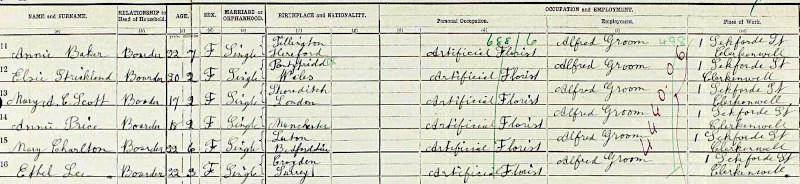 OCCUPATION AND EMPLOYMENT.
NAME and SURNAME. RELATIONSHIP to Head of Household. AGE. SEX. MARRIAGE or ORPHANHOOD. BIRTHPLACE and NATIONALITY. Personal Occupation. Employment. Place of Work.
11 Annie Baker Boarder 22 7 F Single Tillington Hereford Artificial Florist 688/6 Alfred Groom 498 1 Sekforde St Clerkenwell
12 Elsie Strickland Boarder 20 2 F Single Pontypridd Wales Artificial Florist Alfred Groom 1 Sekforde St Clerkenwell
13 Mary A. C. Scott Boarder 17 2 F Single Shoreditch London Artificial Florist Alfred Groom 1 Sekforde St Clerkenwell
14 Annie Price Boarder 18 2 F Single Manchester Artificial Florist Alfred Groom 1 Sekforde St Clerkenwell
15 Mary Charlton Boarder 22 6 F Single Luton Bedfordshire Artificial Florist Alfred Groom 1 Sekforde St Clerkenwell
16 Ethel Lee Boarder 22 3 F Single Croydon Surrey Artificial Florist Alfred Groom 1 Sekforde St Clerkenwell